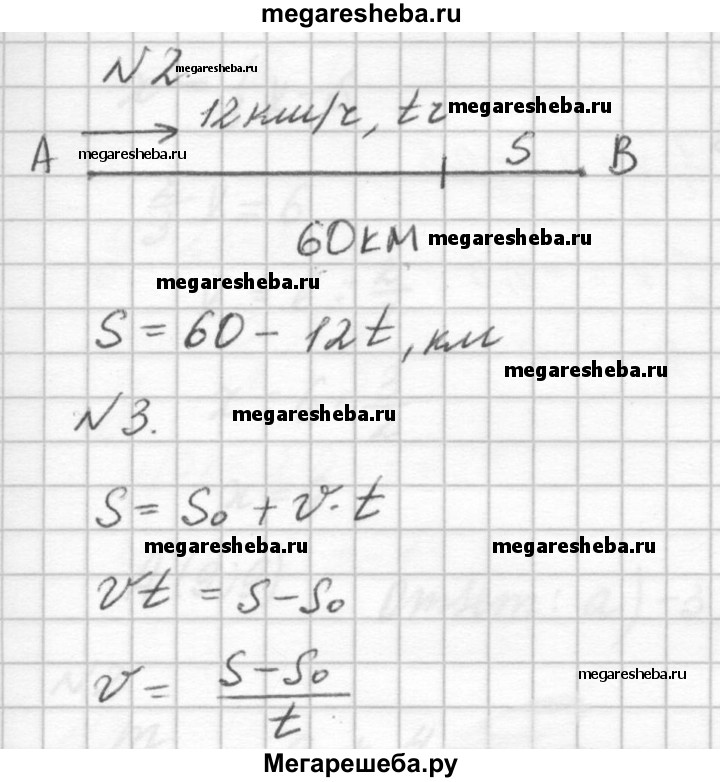 megaresheba.ru
N2. megaresheba.ru
12км/ч, tч megaresheba.ru
A megaresheba.ru S B
60км megaresheba.ru
megaresheba.ru
S = 60 - 12t, км
megaresheba.ru
N3. megaresheba.ru
S = S₀ + v · t
megaresheba.ru megaresheba.ru
vt = S - S₀
v = (S - S₀)/t megaresheba.ru
Мегарешеба.ру